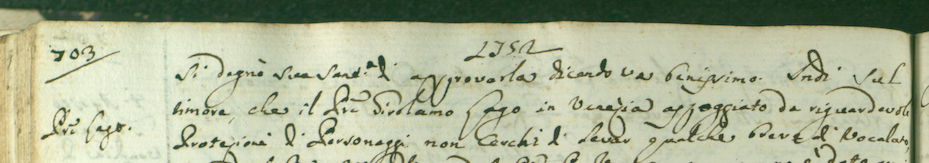 703
1752
si degnò sua Sant.a di approvarla dicendo va benissimo. Indi sul
timore, che il Pre Girolamo Lago in Venezia appoggiato da riguardevole
Pre Lago.
Protezione di Personaggi non cerchi di levar qualche Breve di Vocale,